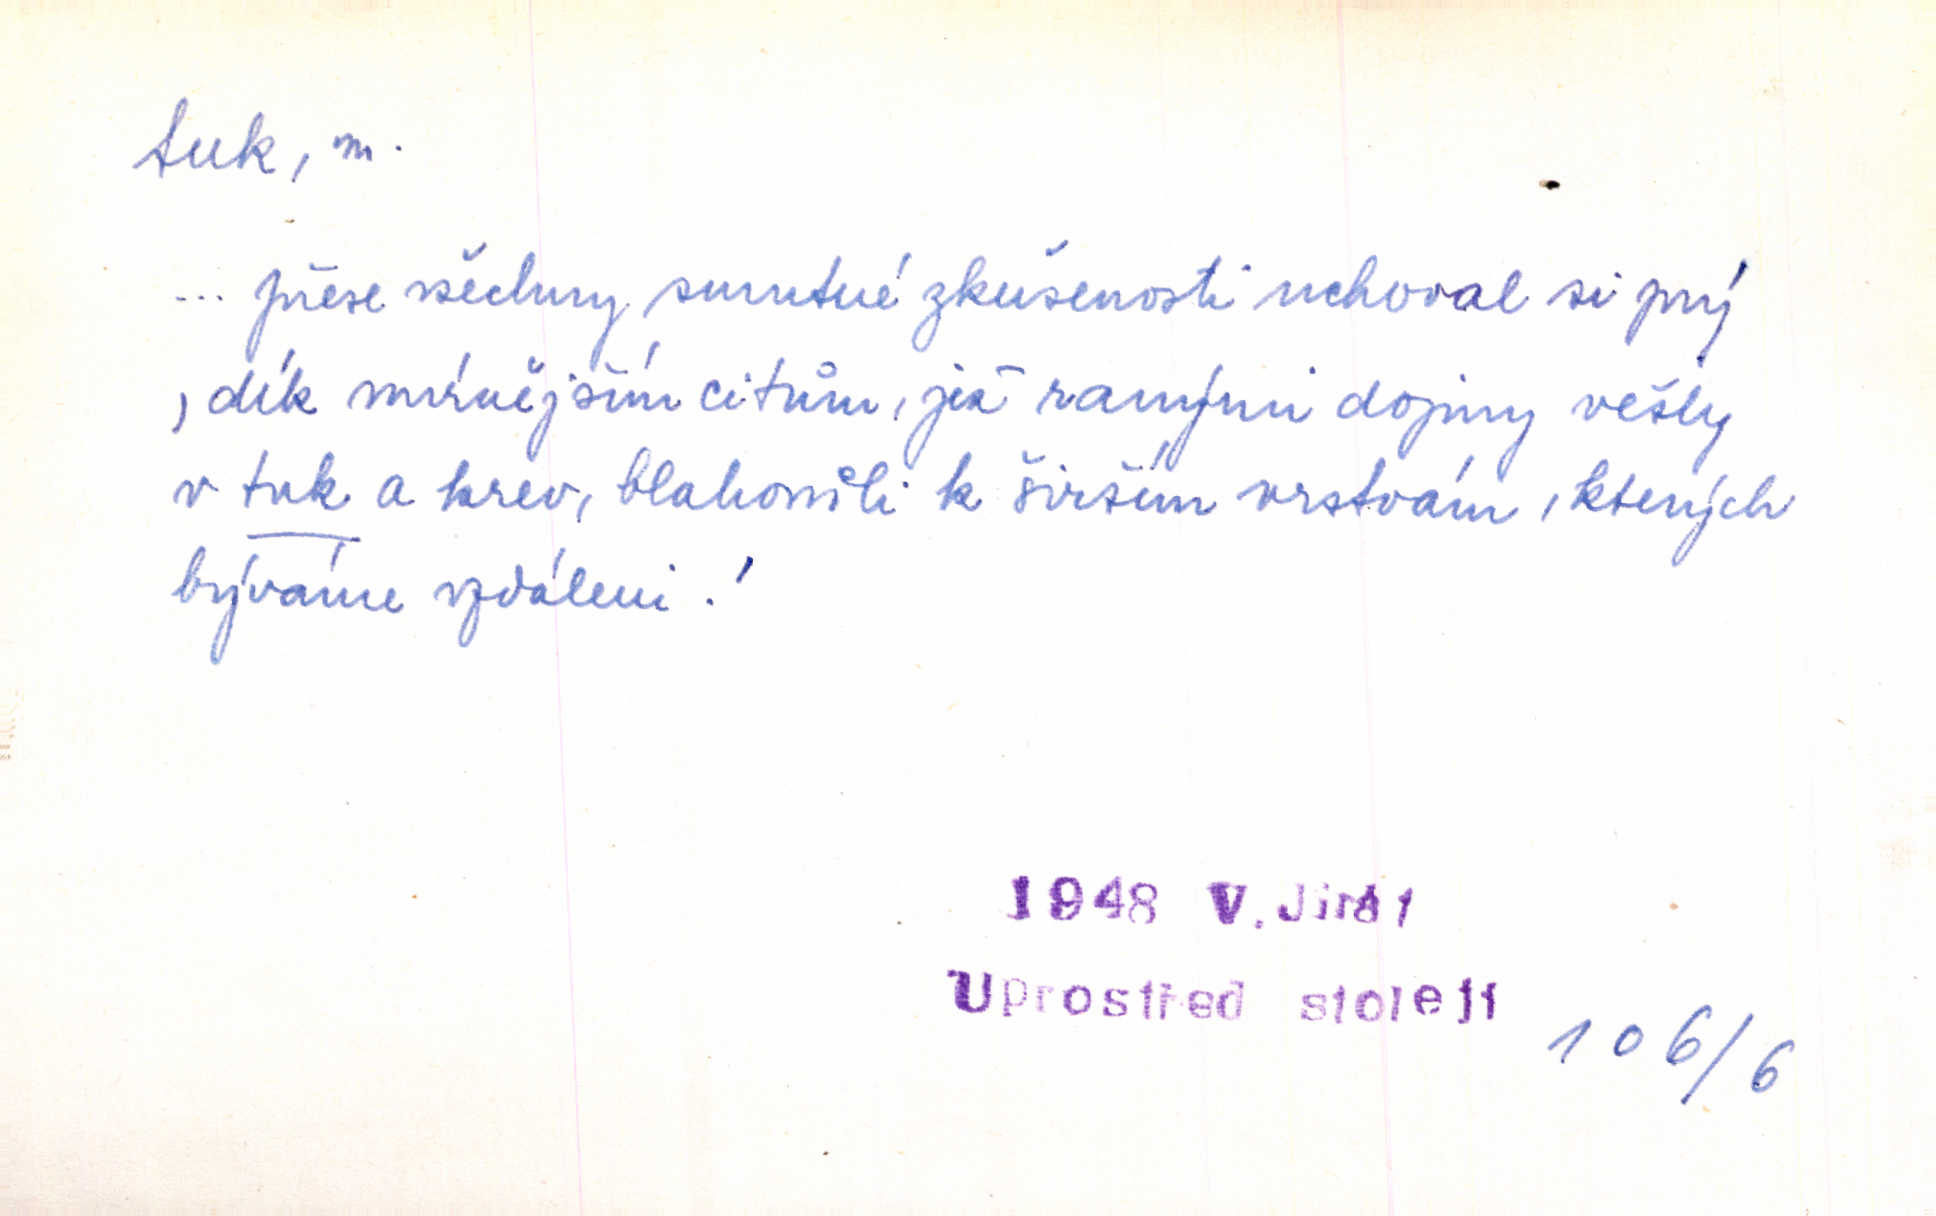 tuk, m.
... přese všechny smutné zkušenosti uchoval si prý
, dík mírnějším citům, jež ranými dojmy vešly
v tuk a krev, blahovůli k širším vrstvám, kterých
býváme vzdáleni.'
1948 V. Jirát
Uprostřed století
106/6